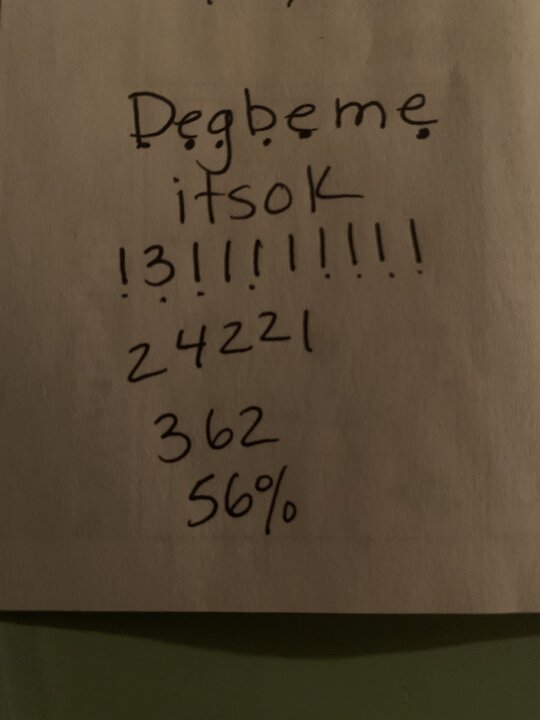 Degbeme
itsok
1311111111
24221
362
56%